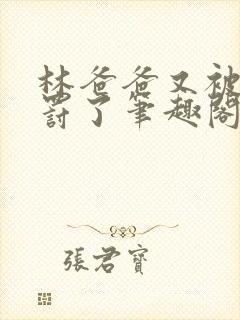 林爸爸又被
罰了筆趣閣
張君寶